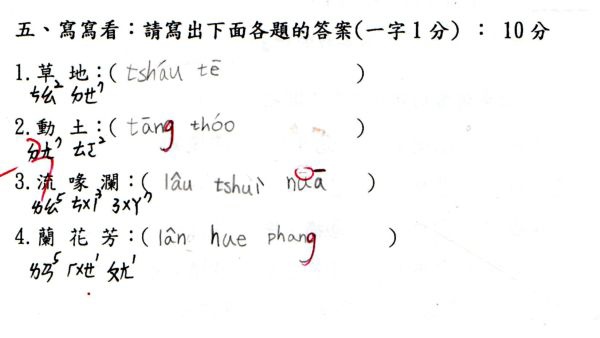 五、寫寫看：請寫出下面各題的答案(一字1分)： 10分
1.草 地：( tsháu tē )
ㄘㄠ2 ㄉㄝ7
2.動 土：( tāng thóo )
ㄉㄤ7 ㄊㆦ2
3.流 喙 瀾：( lâu tshuì nuā )
ㄌㄠ5 ㄘㄨㄧ3 ㄋㄨㄚ7
4.蘭 花 芳：( lân hue phang )
ㄌㄢ5 ㄏㄨㄝ1 ㄆㄤ1